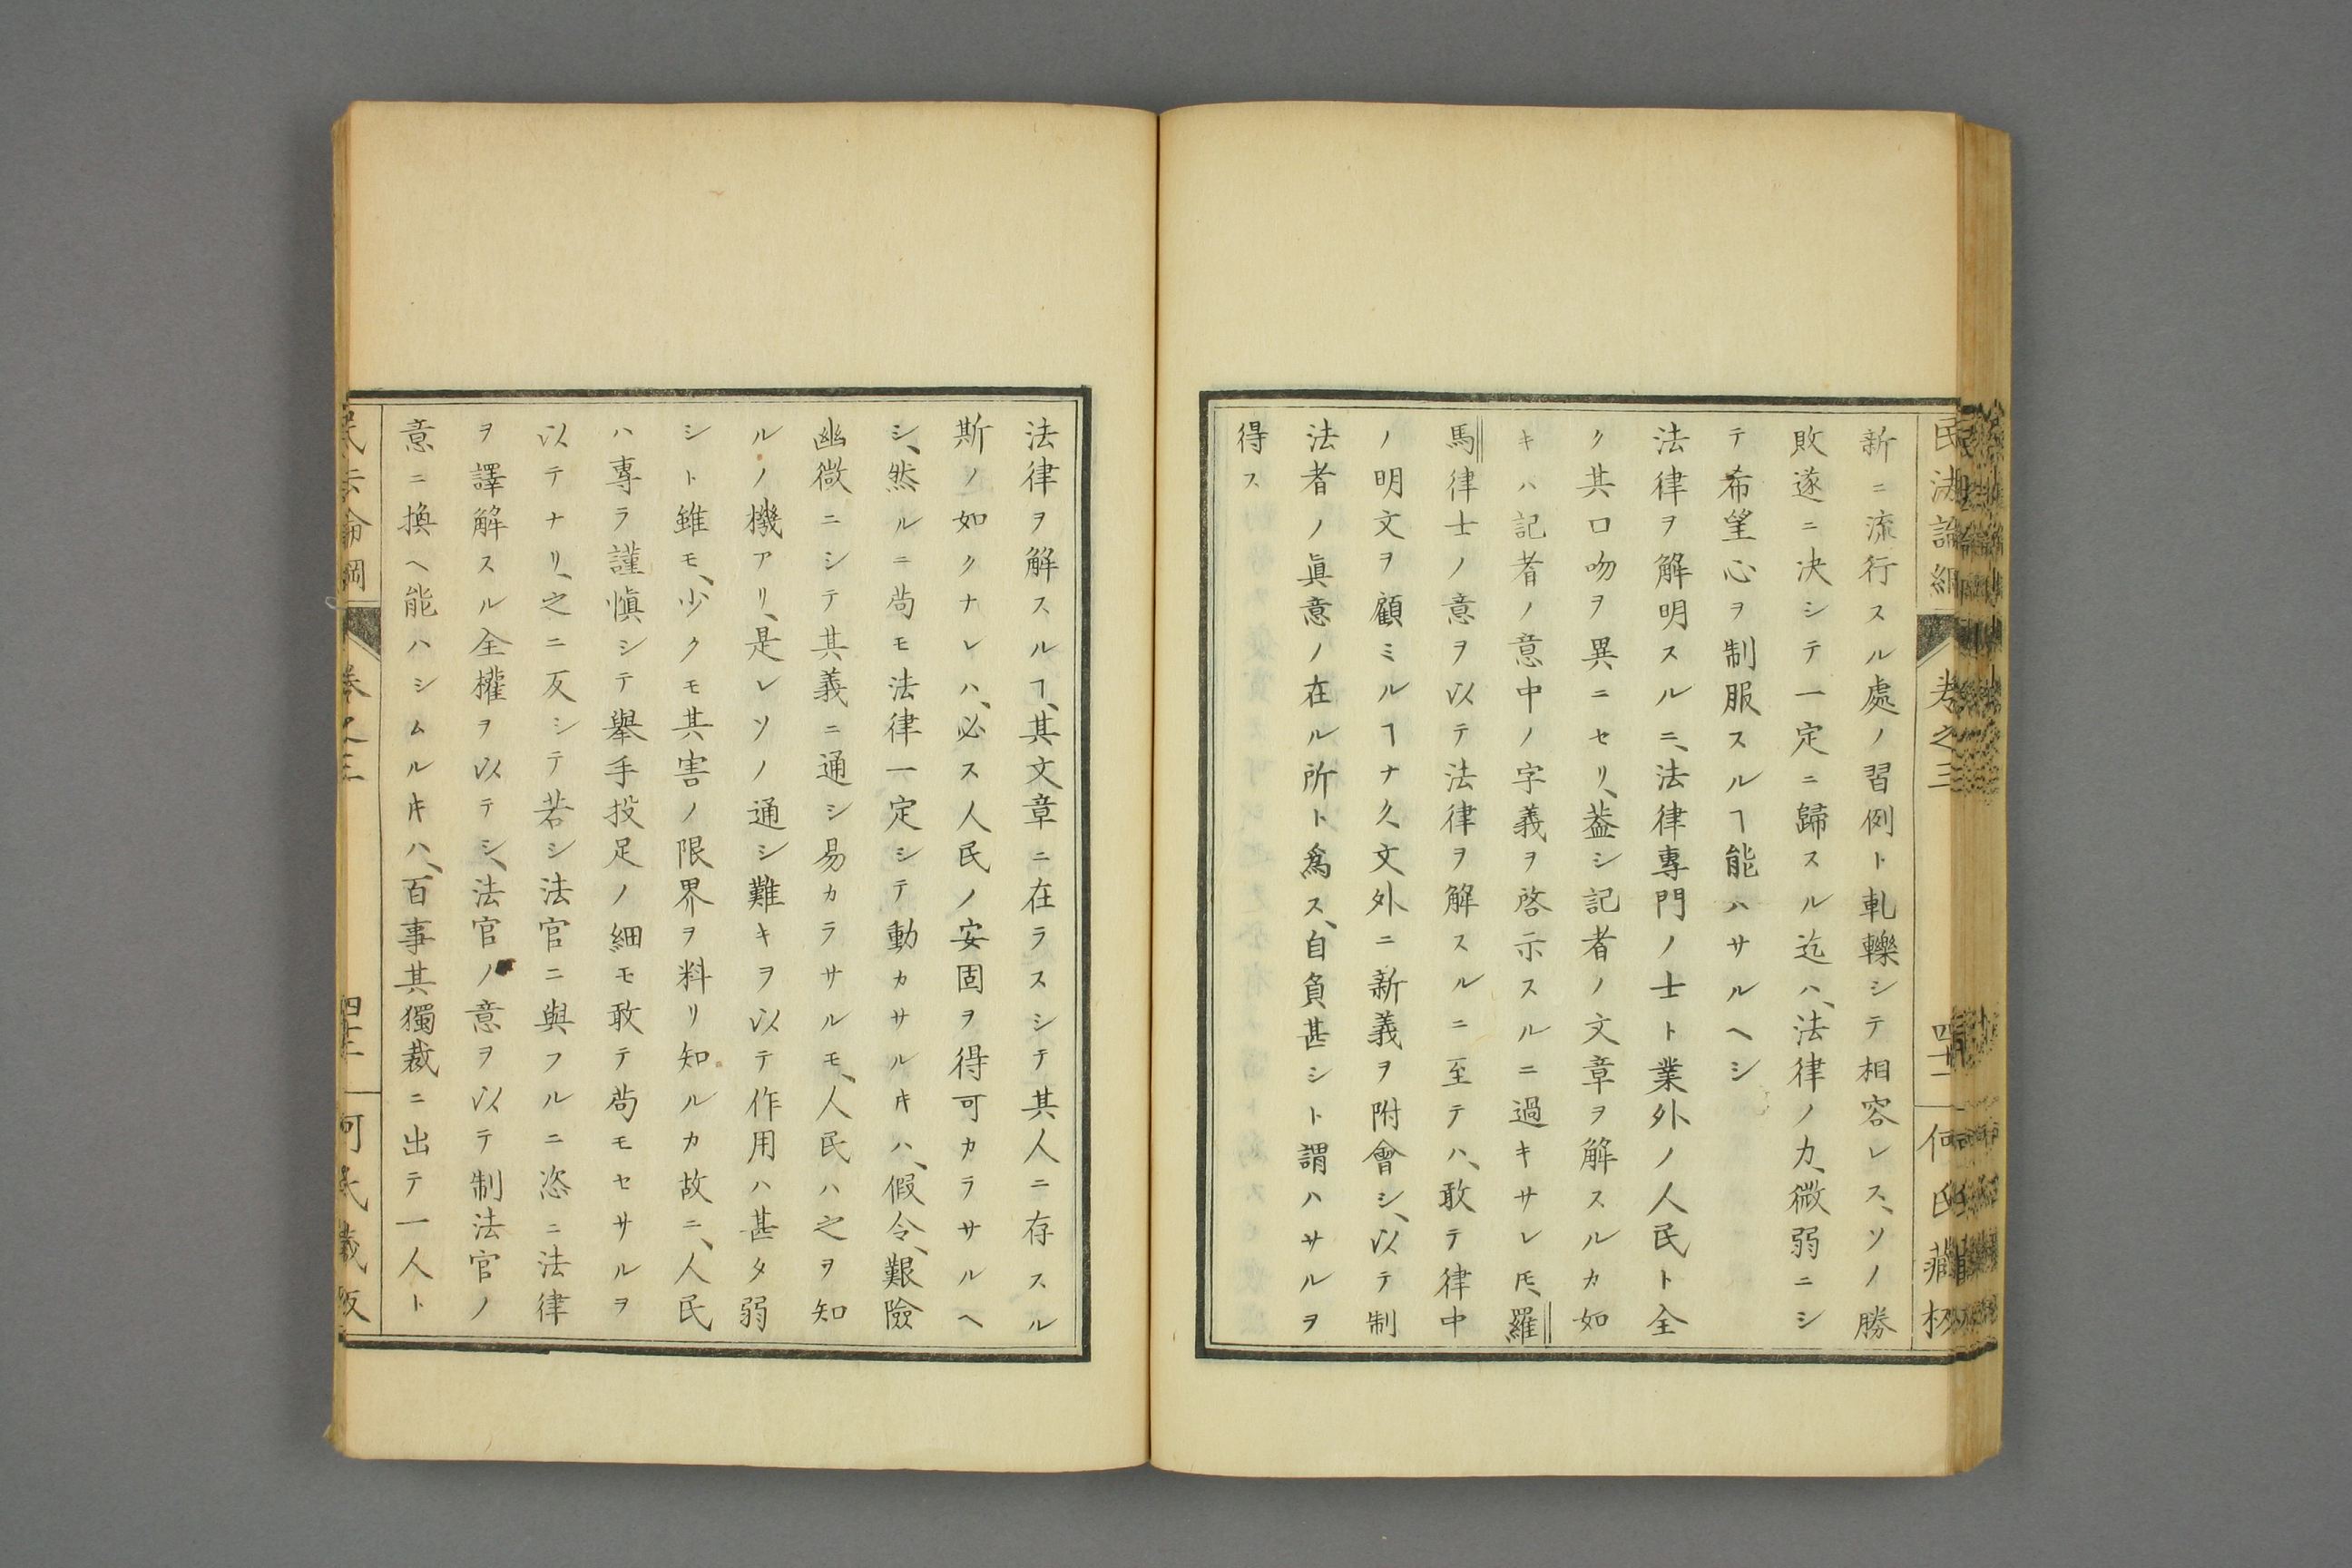 民法論綱 卷之三 四十一 何氏藏板
新ニ流行スル處ノ習例ト軋轢シテ相容レス、ソノ勝
敗遂ニ决シテ一定ニ歸スル迄ハ、法律ノ力、微弱ニシ
テ希望心ヲ制服スルヿ能ハサルヘシ
法律ヲ解明スルニ、法律專門ノ士ト業外ノ人民ト全
ク其口吻ヲ異ニセリ、葢シ記者ノ文章ヲ解スルカ如
キハ記者ノ意中ノ字義ヲ啓示スルニ過キサレ𪜈、羅
馬律士ノ意ヲ以テ法律ヲ解スルニ至テハ、敢テ律中
ノ明文ヲ顧ミルヿナク、文外ニ新義ヲ附會シ、以テ制
法者ノ眞意ノ在ル所ト爲ス、自負甚シト謂ハサルヲ
得ス
法律ヲ解スルヿ、其文章ニ在ラスシテ其人ニ存スル
斯ノ如クナレハ、必ス人民ノ安固ヲ得可カラサルヘ
シ、然ルニ苟モ法律一定シテ動カサルキハ、假令、艱險
幽微ニシテ其義ニ通シ易カラサルモ、人民ハ之ヲ知
ルノ機アリ、是レソノ通シ難キヲ以テ作用ハ甚タ弱
シト雖モ、少クモ其害ノ限界ヲ料リ知ルカ故ニ、人民
ハ專ラ謹愼シテ擧手投足ノ細モ敢テ苟モセサルヲ
以テナリ、之ニ反シテ若シ法官ニ與フルニ恣ニ法律
ヲ譯解スル全權ヲ以テシ、法官ノ意ヲ以テ制法官ノ
意ニ換ヘ能ハシムルキハ、百事其獨裁ニ出テ一人ト
民法論綱 卷之三 四十二 何氏藏板